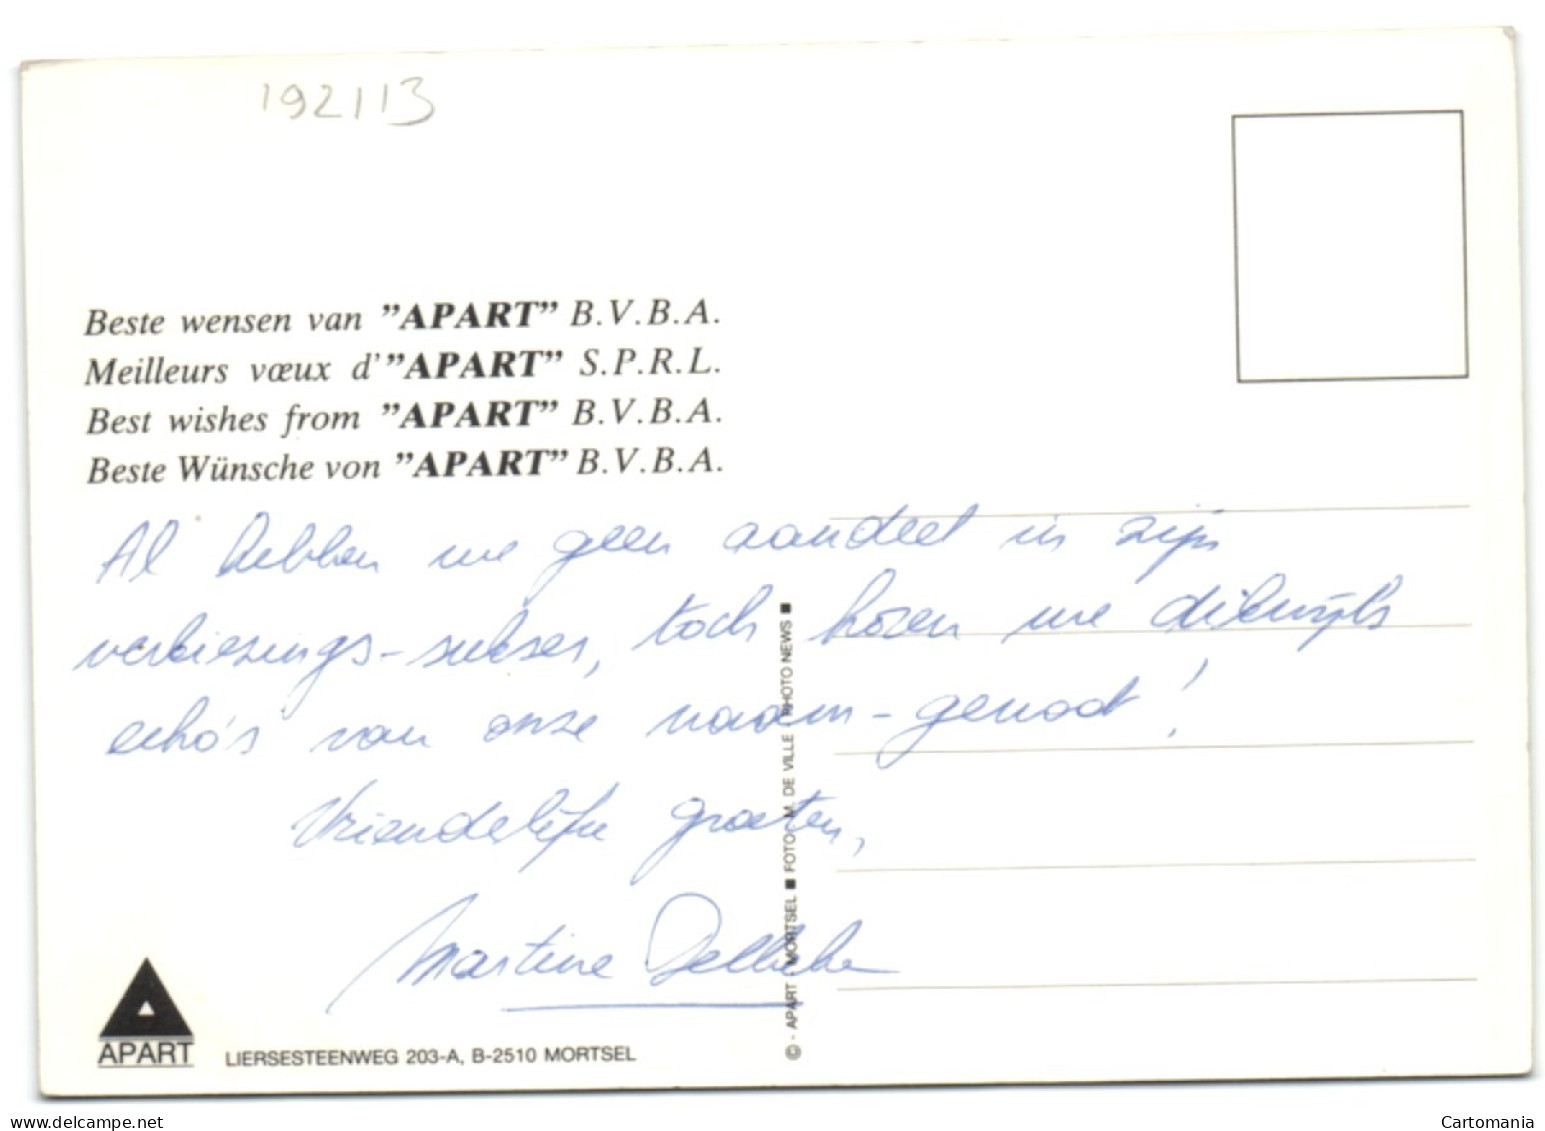 192113
Beste wensen van "APART" B.V.B.A.
Meilleurs vœux d'"APART" S.P.R.L.
Best wishes from "APART" B.V.B.A.
Beste Wünsche von "APART" B.V.B.A.
Al hebben we geen aandeel in zijn
verkiezings-sukses, toch horen we dikwijls
echo's van onze naam-genoot!
Vriendelijke groeten,
Martine
APART
LIERSESTEENWEG 203-A, B-2510 MORTSEL
© - APART - MORTSEL ■ FOTO: M. DE VILLE - PHOTO NEWS ■
www.delcampe.net
Cartomania